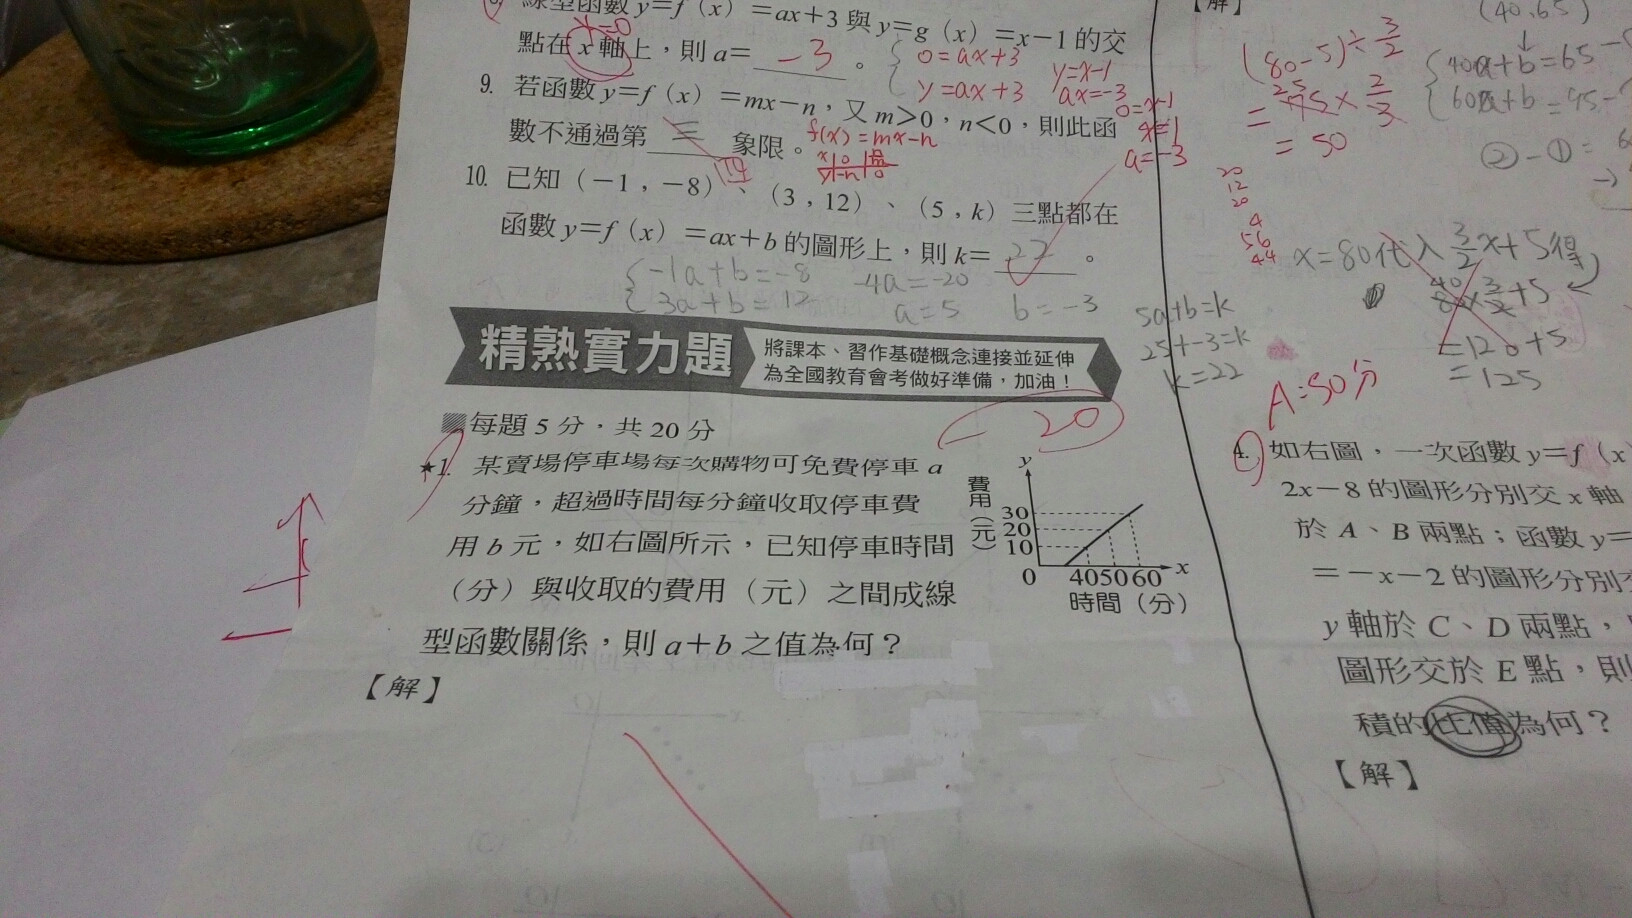 線型函數 y=f(x)=ax+3 與 y=g(x)=x-1 的交
y=0
點在 x 軸上,則 a= -3 。
0=ax+3
y=ax+3
y=x-1
ax=-3
0=x-1
x=1
a=-3
9. 若函數 y=f(x)=mx-n,又 m>0,n<0,則此函
數不通過第 三 象限。
四
f(x)=mx-n
10. 已知(-1,-8)、(3,12)、(5,k)三點都在
函數 y=f(x)=ax+b 的圖形上,則 k= 22 。
-1a+b=-8
3a+b=12
-4a=-20
a=5
b=-3
5a+b=k
25+-3=k
k=22
精熟實力題
將課本、習作基礎概念連接並延伸
為全國教育會考做好準備,加油!
20
每題 5 分,共 20 分
★1. 某賣場停車場每次購物可免費停車 a
分鐘,超過時間每分鐘收取停車費
用 b 元,如右圖所示,已知停車時間
(分)與收取的費用(元)之間成線
型函數關係,則 a+b 之值為何?
【解】
y
費用(元)
30
20
10
0
40 50 60
x
時間(分)
【解】
(40,65)
(80-5)÷3/2
=75×2/3
25
=50
40a+b=65
60a+b=95
②-①=
20
12
20
4
56
44
x=80代入3/2x+5得
80×3/2+5
40
=120+5
=125
A:50分
4. 如右圖,一次函數 y=f(x
2x-8 的圖形分別交 x 軸
於 A、B 兩點;函數 y=
=-x-2 的圖形分別
y 軸於 C、D 兩點,
圖形交於 E 點,則
積的比值為何?
【解】